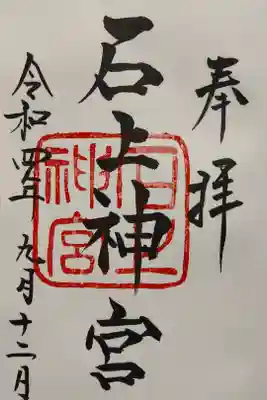 奉拝
石上神宮
石上神宮
令和四年九月十二日